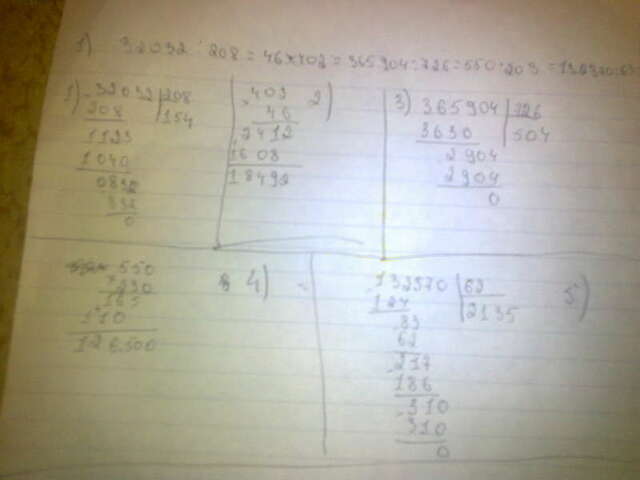 1) 32032 : 208 = 46 × 402 = 365904 : 726 = 550 · 203 = 132370 : 62
1) 32032 | 208
208 | 154
1123
1040
0832
832
0
403 2)
46
2412
1608
18492
3) 365904 | 726
3630 | 504
2904
2904
0
550 4)
230
165
110
126.500
132370 | 62 5)
124 | 2135
83
62
217
186
310
310
0